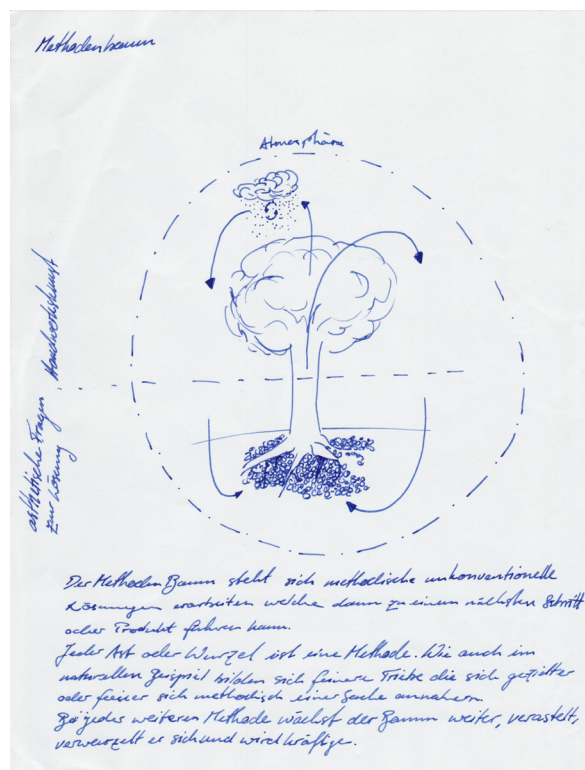 Methodenbaum
Atmosphäre
ästhetische Fragen, Handwerkskunst
zur Lösung
Der Methoden Baum steht sich methodische unkonventionelle
Lösungen erarbeiten welche dann zu einem nächsten Schritt
oder Produkt führen kann.
Jeder Ast oder Wurzel ist eine Methode. Wie auch im
naturellen Beispiel bilden sich feinere Triebe die sich gezielter
oder feiner sich methodisch einer Sache annähern.
Bei jeder weiteren Methode wächst der Baum weiter, verastelt,
verwurzelt er sich und wird kräftige.